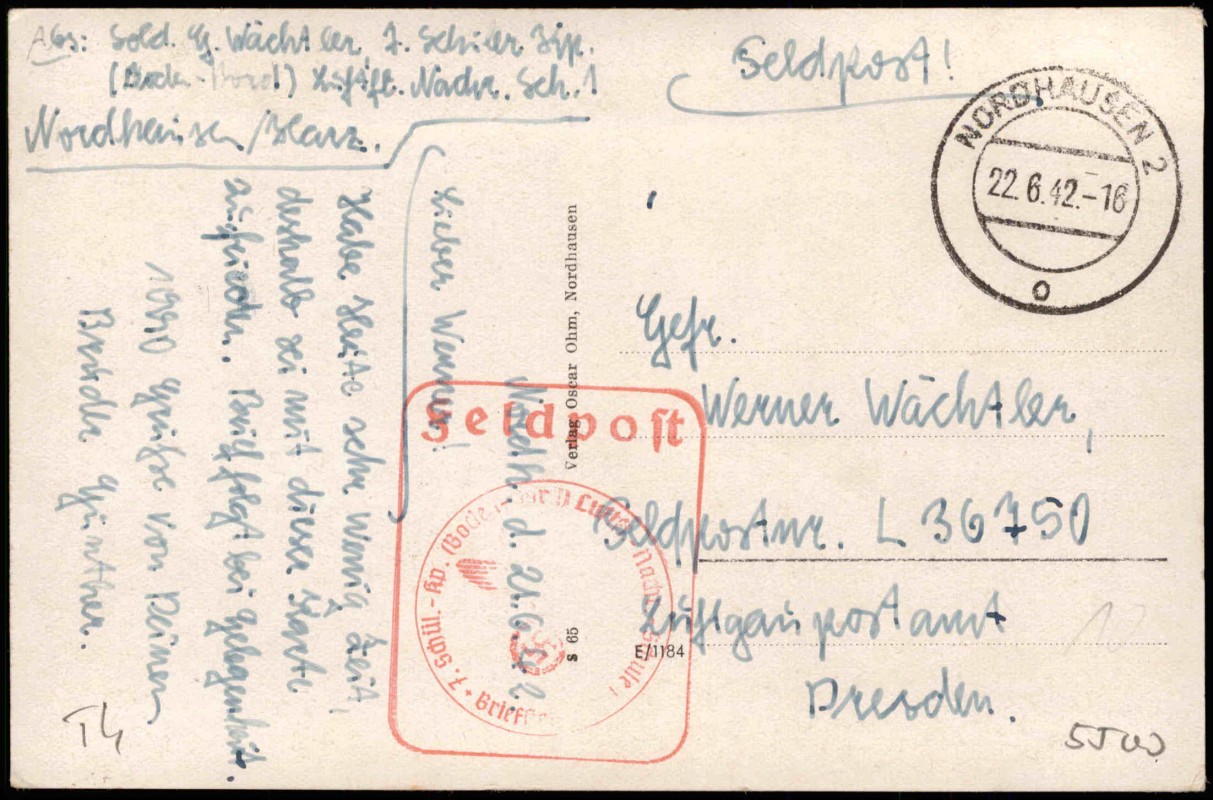 Abs: Sold. G. Wächtler 7. Schüler Kp.
(Boden-Bord) Luftfl. Nachr. Sch. 1
Nordhausen/Harz.
Feldpost!
NORDHAUSEN 2
22.6.42.-16
o
Nordh. d. 21.6.42.
Lieber Werner!
Habe heute sehr wenig Zeit,
deshalb sei mit dieser Karte
zufrieden. Brief folgt bei Gelegenheit.
1000 Grüße von Deinem
Bruder Günther.
Verlag Oscar Ohm, Nordhausen
S 65
E/1184
Feldpost
7. Schül.-Kp. (Boden
Nachr. Schule 1
Gefr.
Werner Wächtler,
Feldpostnr. L 36750
Luftgaupostamt
Dresden.
10
T4